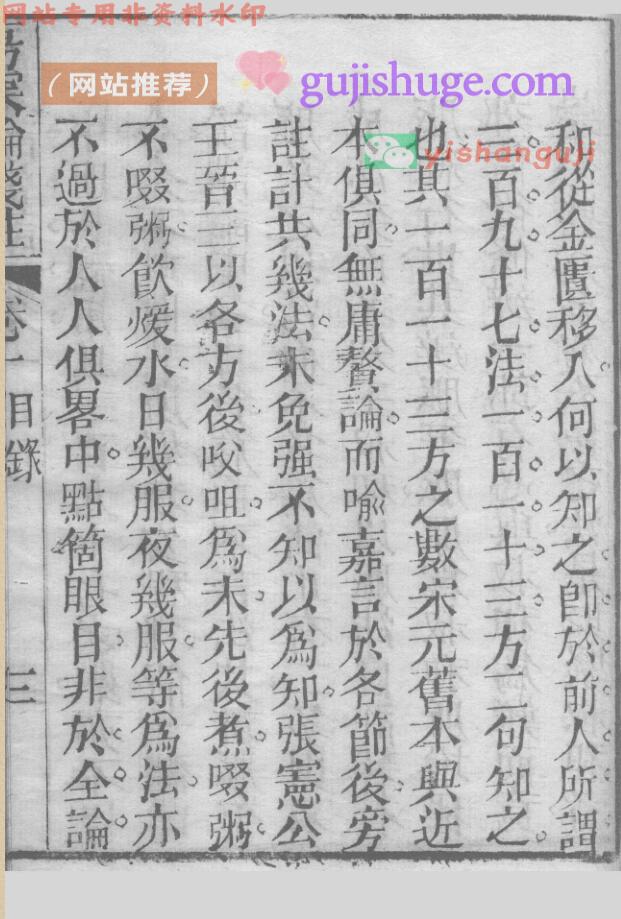 网站专用非资料水印
（网站推荐）
gujishuge.com
yishanguji
和從金匱移入何以知之卽於前人所謂
三百九十七法一百一十三方二句知之
也其一百一十三方之數宋元舊本與近
本俱同無庸贅論而喻嘉言於各節後旁
註計共幾法未免强不知以爲知張憲公
王晉三以各方後㕮咀爲末先後煮啜粥
不啜粥飮煖水日幾服夜幾服等爲法亦
不過於人人俱畧中點箇眼目非於全論
寒論淺註 卷一 目錄 三